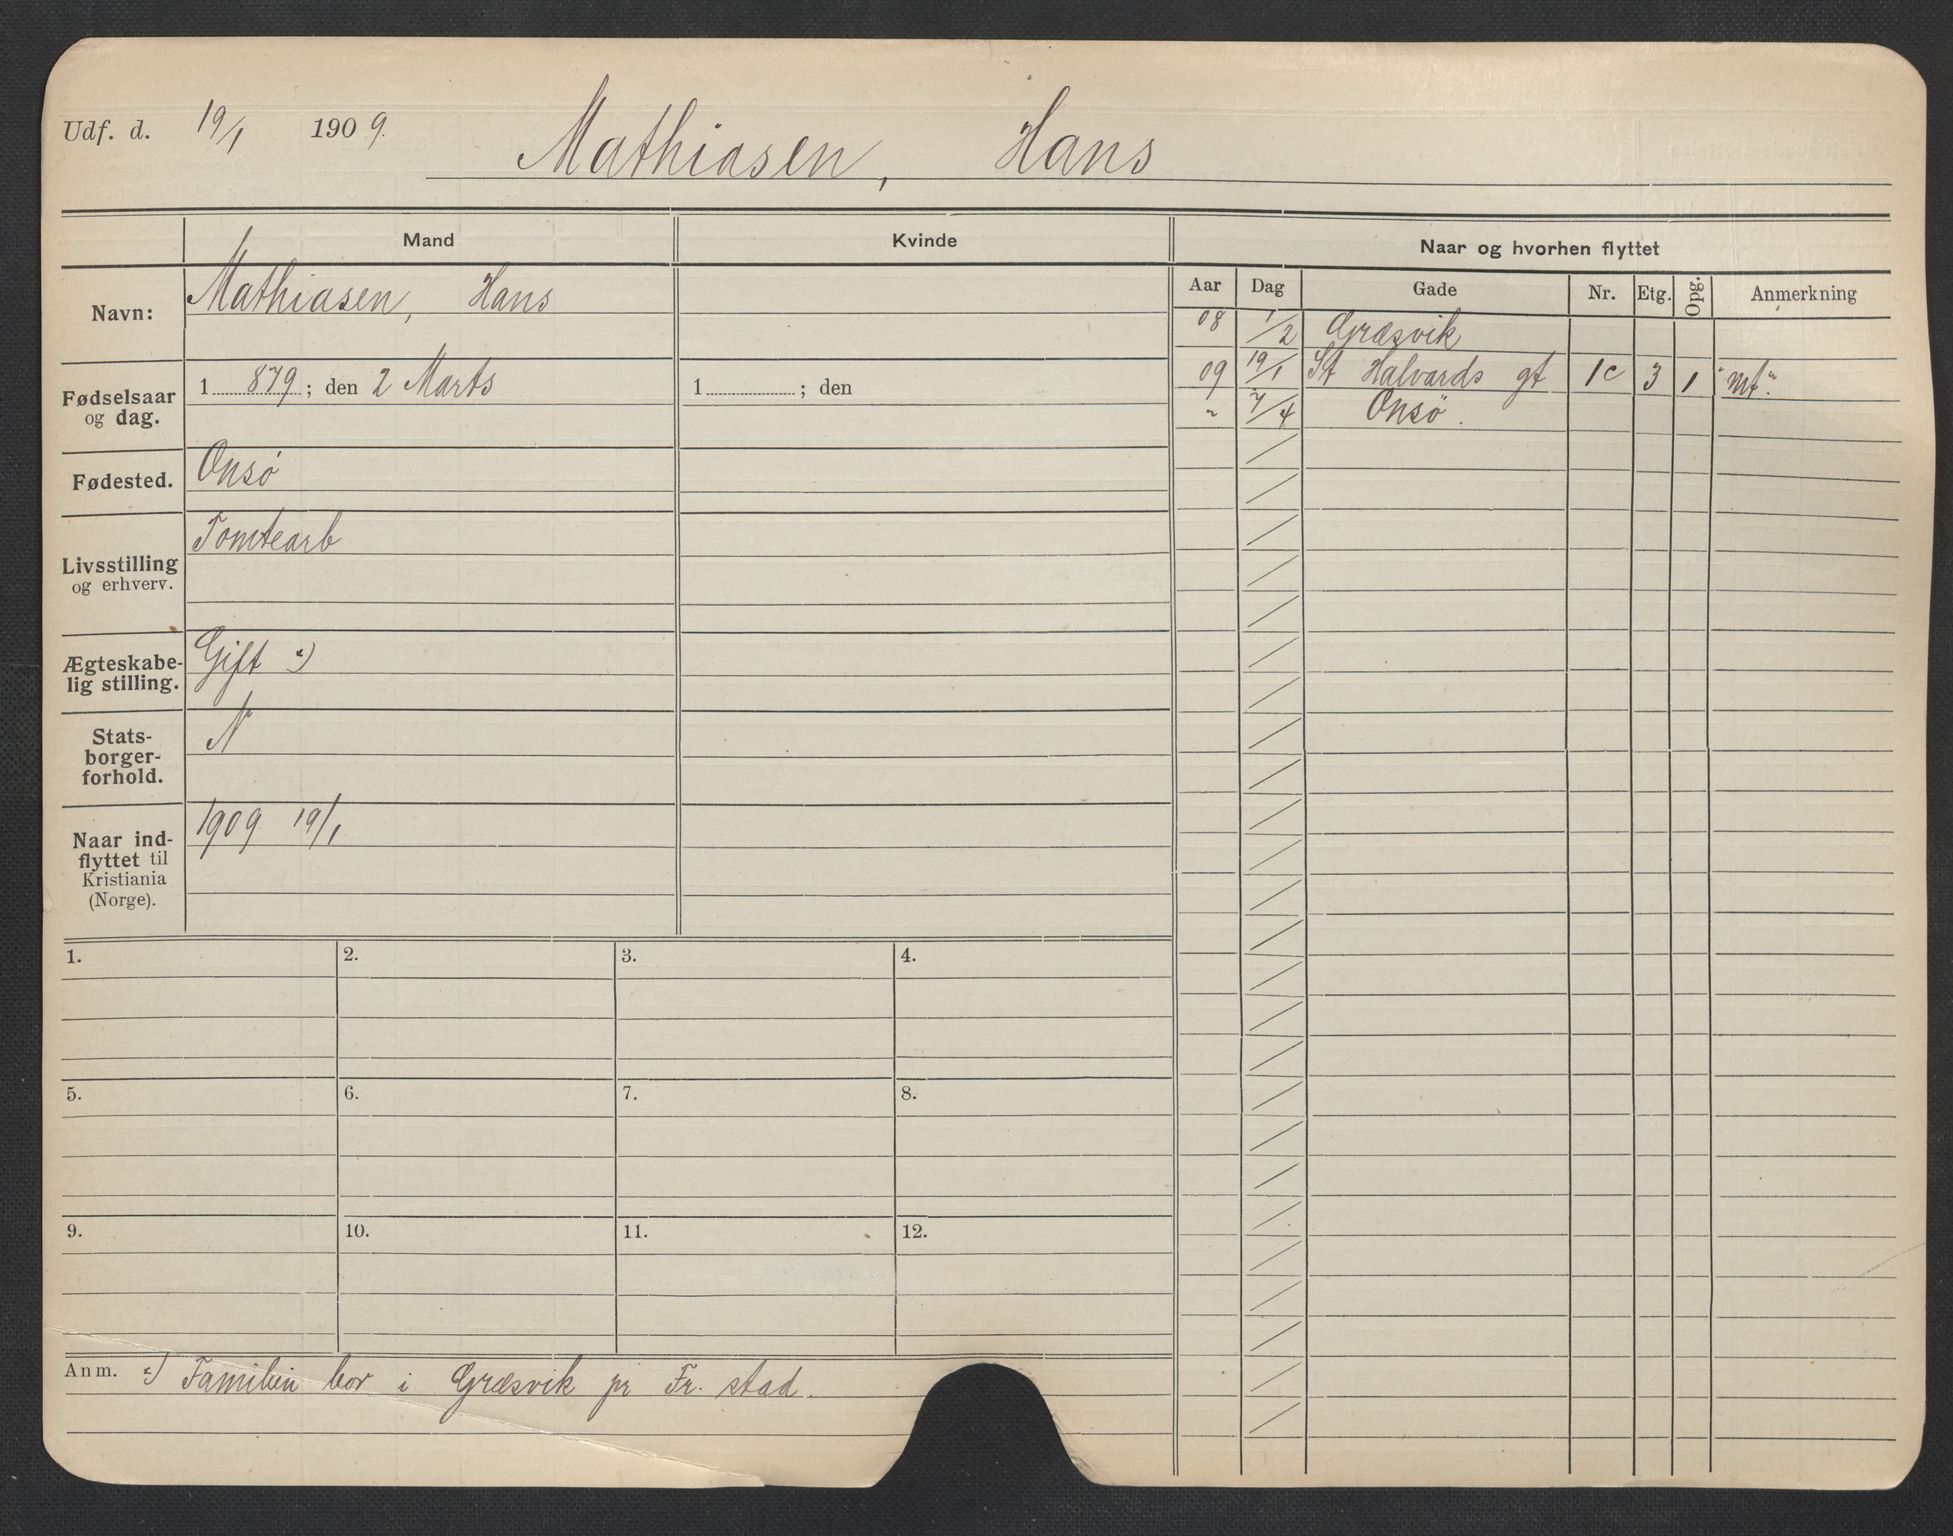 Udf. d. 19/1 1909.
Mathiasen, Hans
Mand
Kvinde
Naar og hvorhen flyttet
Aar Dag Gade Nr. Etg. Opg. Anmerkning
08 1/2 Græsvik
09 19/1 St Halvards gt 1c 3 1 "mt".
" 7/4 Onsö.
Navn: Mathiasen, Hans
Fødselsaar
og dag.
1879; den 2 Marts
1 ; den
Fødested. Onsö
Livsstilling
og erhverv.
Tomtearb
Ægteskabe-
lig stilling.
Gift
Stats-
borger-
forhold.
N
Naar ind-
flyttet til
Kristiania
(Norge).
1909 19/1
1. 2. 3. 4.
5. 6. 7. 8.
9. 10. 11. 12.
Anm. Familien bor i Græsvik pr Fr. stad.